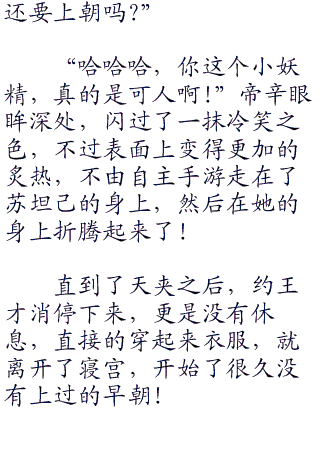 还要上朝吗?”
“哈哈哈，你这个小妖
精，真的是可人啊!”帝辛眼
眸深处，闪过了一抹冷笑之
色，不过表面上变得更加的
炙热，不由自主手游走在了
苏坦己的身上，然后在她的
身上折腾起来了!
直到了天夹之后，约王
才消停下来，更是没有休
息，直接的穿起来衣服，就
离开了寝宫，开始了很久没
有上过的早朝!